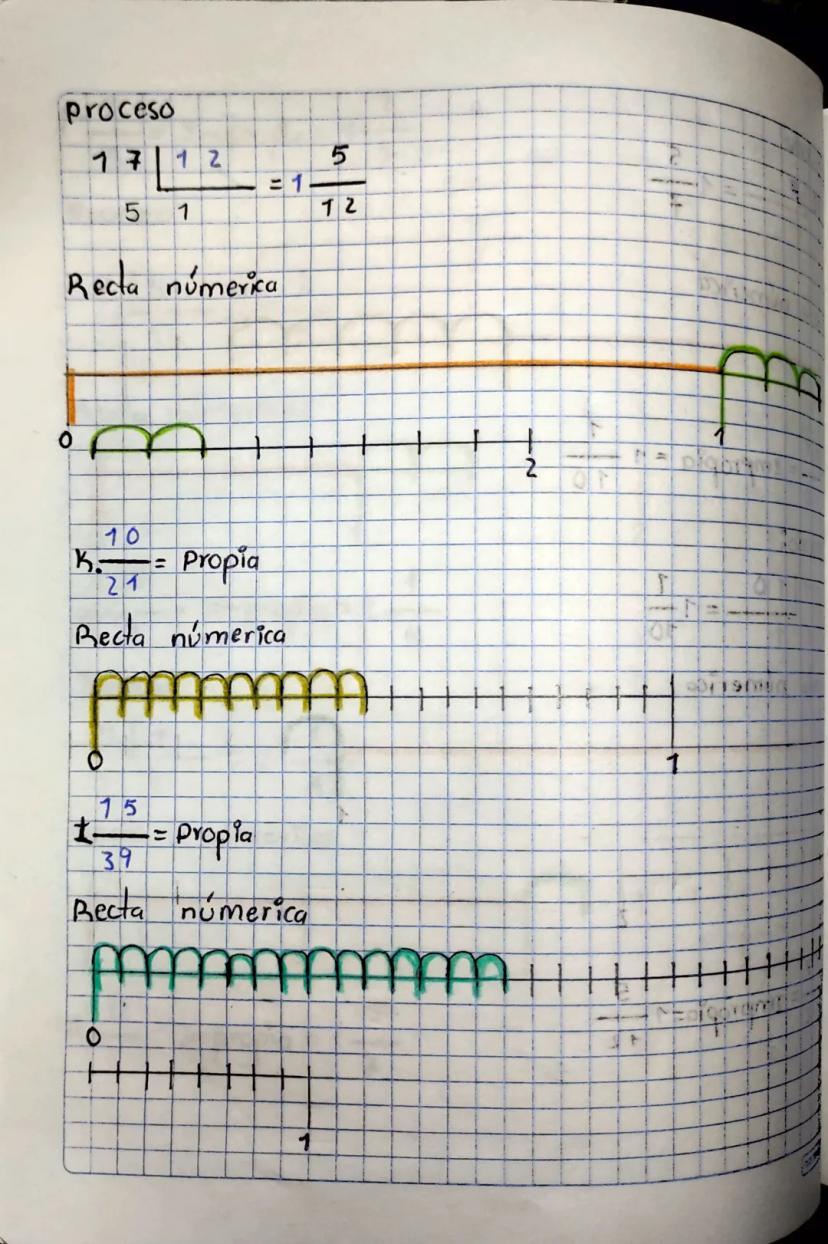 proceso
17 | 12 = 1 5/12
5 1
Recta númerica
0 1
2
K. 10/21 = Propia
Recta númerica
0 1
ł 15/39 = Propia
Recta númerica
0
1